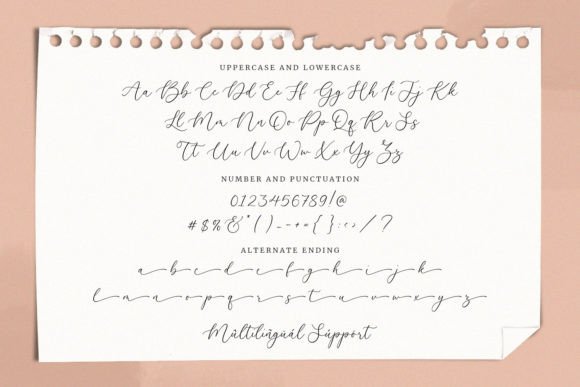 UPPERCASE AND LOWERCASE
Aa Bb Cc Dd Ee Ff Gg Hh Ii Jj Kk
Ll Mm Nn Oo Pp Qq Rr Ss
Tt Uu Vv Ww Xx Yy Zz
NUMBER AND PUNCTUATION
0123456789!@
#$%&*()_-+={}:;<>/?
ALTERNATE ENDING
a b c d e f g h i j k
l m n o p q r s t u v w x y z
Mùltílíñgùàl Sùppört